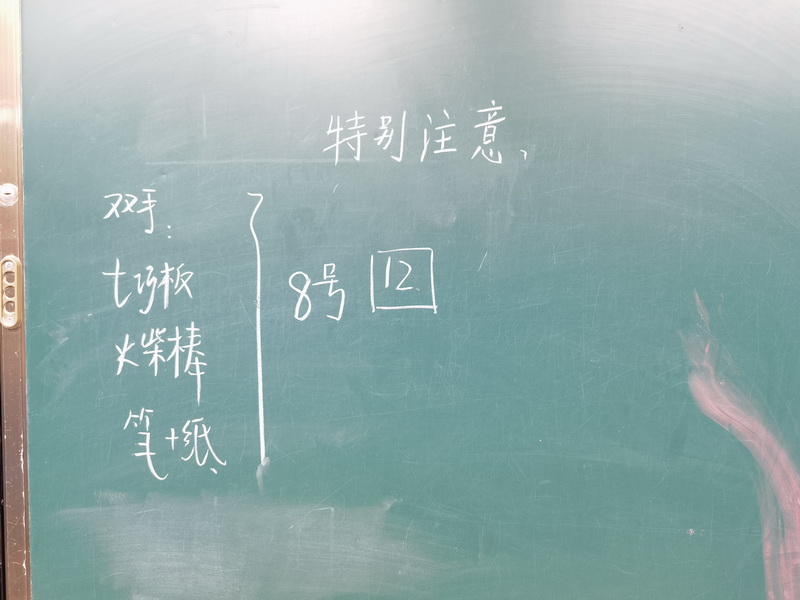 特别注意、
双手：
七巧板
火柴棒
笔+纸、
8号 12.